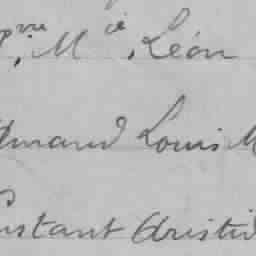 Pre, Mie, Léon
Amand Louis M
nstant Aristid